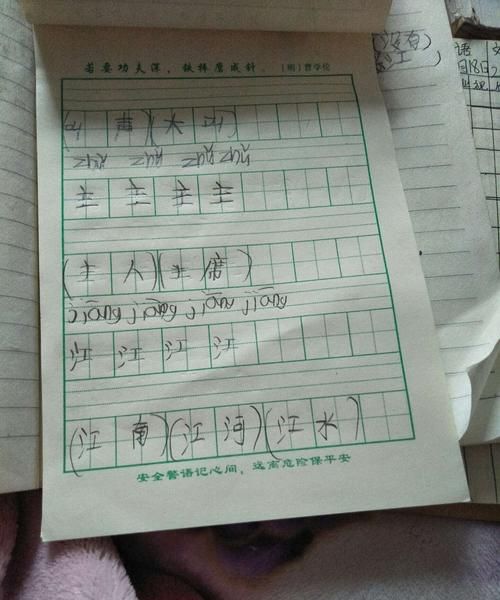 若要功夫深，铁棒磨成针。 [明] 曹学佺
叫声)(大叫)
zhǔ zhǔ zhǔ zhǔ
主 主 主 主
(主人)(主席)
jiāng jiāng jiāng jiāng
江 江 江 江
(江南)(江河)(江水)
安全警语记心间，远离危险保平安
(没有)